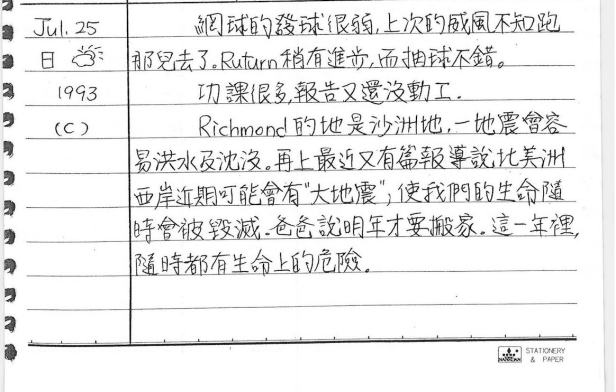 Jul. 25 網球的發球很弱,上次的威風不知跑
日 那兒去了。Ruturn稍有進步,而抽球不錯。
1993 功課很多,報告又還沒動工.
(C) Richmond的地是沙洲地,一地震會容
易洪水及沈沒。再上最近又有篇報導說北美洲
西岸近期可能會有"大地震",使我們的生命隨
時會被毀滅.爸爸說明年才要搬家。這一年裡,
隨時都有生命上的危險。
STATIONERY
& PAPER